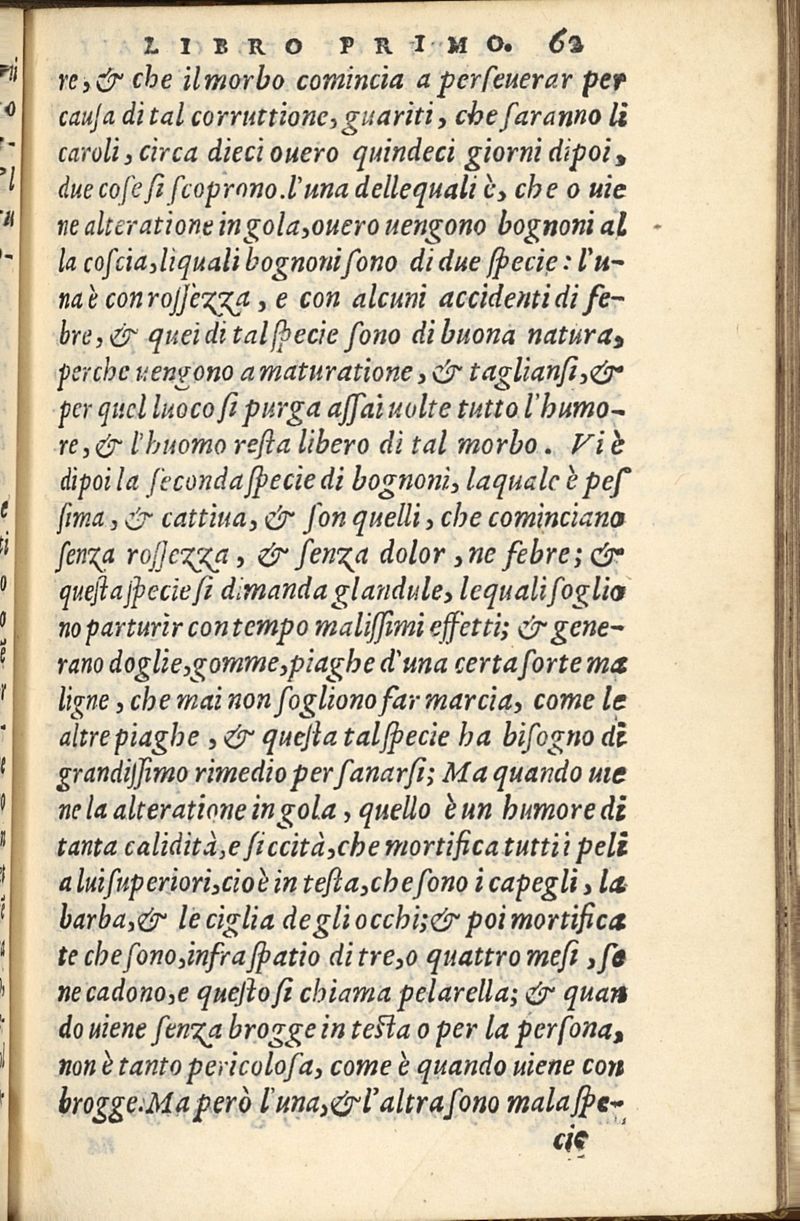 LIBRO PRIMO. 62
re, & che il morbo comincia a perseuerar per
causa di tal corruttione, guariti, che saranno li
caroli, circa dieci ouero quindeci giorni dipoi,
due cose si scoprono. l'una dellequali è, che o uie
ne alteratione in gola, ouero uengono bognoni al
la coscia, liquali bognoni sono di due specie: l'u-
na è con rossezza, e con alcuni accidenti di fe-
bre, & quei di tal specie sono di buona natura,
perche uengono a maturatione, & tagliansi, &
per quel luoco si purga assai uolte tutto l'humo-
re, & l'huomo resta libero di tal morbo. Vi è
dipoi la seconda specie di bognoni, laquale è pes
sima, & cattiua, & son quelli, che cominciano
senza rossezza, & senza dolor, ne febre; &
questa specie si dimanda glandule, lequali soglio
no parturir con tempo malissimi effetti; & gene-
rano doglie, gomme, piaghe d'una certa sorte ma
ligne, che mai non sogliono far marcia, come le
altre piaghe, & questa tal specie ha bisogno di
grandissimo rimedio per sanarsi; Ma quando uie
ne la alteratione in gola, quello è un humore di
tanta calidità, e siccità, che mortifica tutti i peli
a lui superiori, cioè in testa, che sono i capegli, la
barba, & le ciglia de gli occhi; & poi mortifica
te che sono, infra spatio di tre, o quattro mesi, se
ne cadono, e questo si chiama pelarella; & quan
do uiene senza brogge in testa o per la persona,
non è tanto pericolosa, come è quando uiene con
brogge. Ma però l'una, & l'altra sono mala spe-
cie